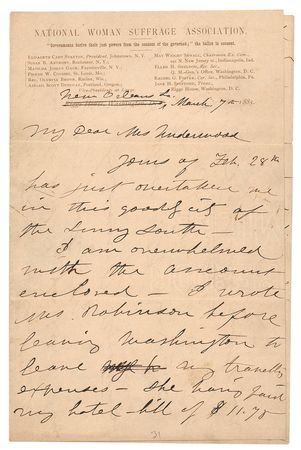 NATIONAL WOMAN SUFFRAGE ASSOCIATION.
"Governments derive their just powers from the consent of the governed;" the ballot is consent.
ELIZABETH CADY STANTON, President, Johnstown, N. Y.
SUSAN B. ANTHONY, Rochester, N. Y.
MATILDA JOSLYN GAGE, Fayetteville, N. Y.
PHEBE W. COUZINS, St. Louis, Mo.
REV. OLYMPIA BROWN, Racine, Wis.
ABIGAIL SCOTT DUNIWAY, Portland, Oregon.
Vice-Presidents at Large.
MAY WRIGHT SEWALL, Chairman Ex. Com.
N. New Jersey st., Indianapolis, Ind.
ELLEN H. SHELDON, Rec. Sec.
Q. M.-Gen.'s Office, Washington, D. C.
RACHEL G. FOSTER, Cor. Sec., Philadelphia, Pa.
JANE H. SPOFFORD, Treas.
Riggs House, Washington, D. C.
New Orleans La. March 7th 1885
My Dear Mrs Underwood
Yours of Feb. 28th
has just overtaken me
in this goodly city of
the Sunny South—
I am overwhelmed
with the account
enclosed— I wrote
Mrs. Robinson before
leaving Washington to
leave my travelling
expenses— she having paid
my hotel-bill of $11.75
31